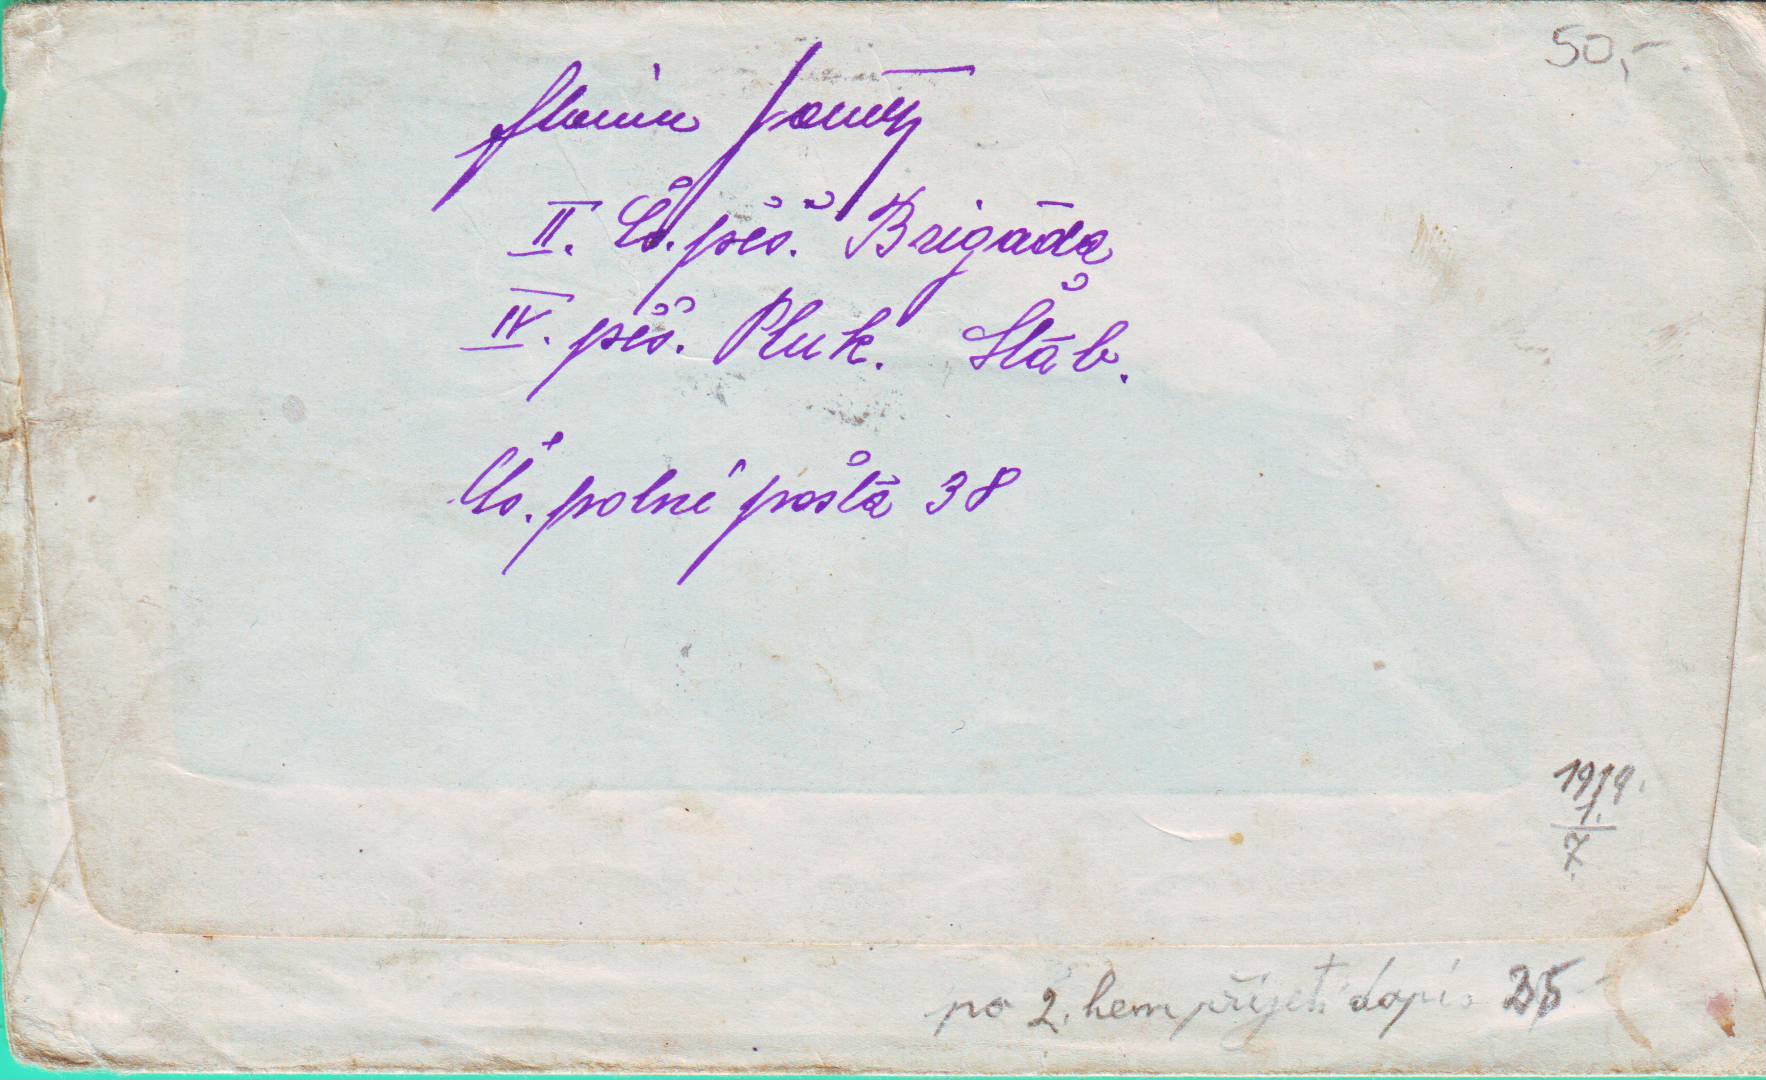 50,-
II. Čs. pěš. Brigáda
IV. pěš. Pluk. Štáb.
Čs. polní pošta 38
1919.
1.
7.
po 2. přijetí dopis 35-